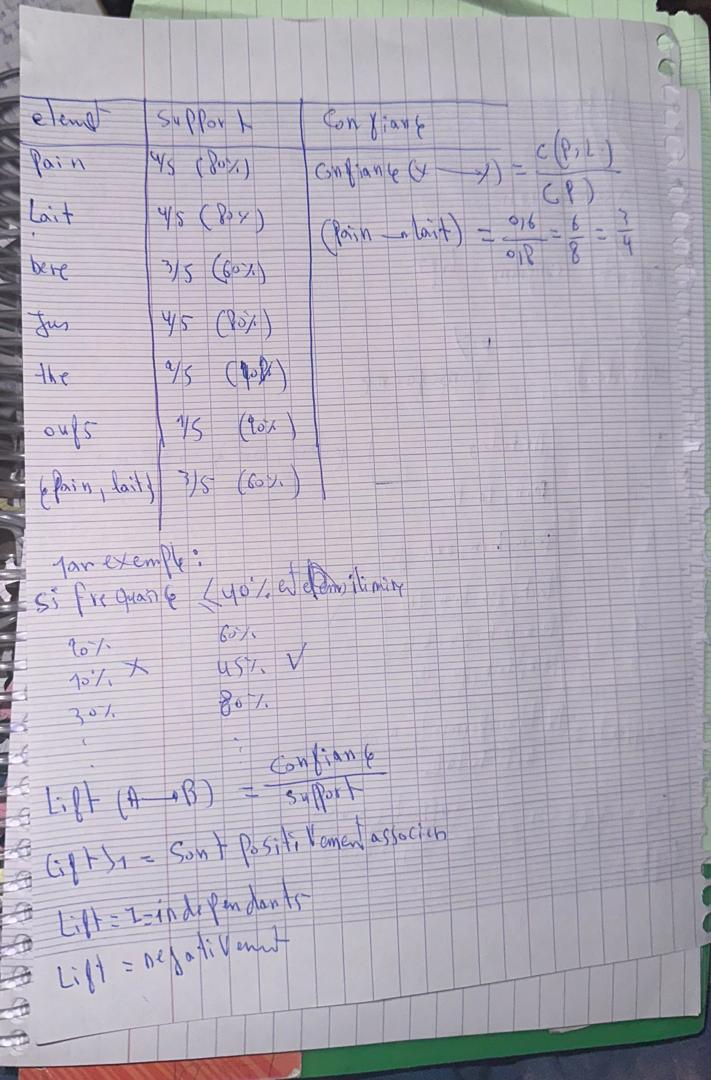 element Support Confiance
Pain 4/5 (80%) Confiance (x → y) = C(P,L) / C(P)
Lait 4/5 (80%) (Pain → lait) = 0,6/0,8 = 6/8 = 3/4
bere 3/5 (60%)
Jus 4/5 (80%)
the 2/5 (40%)
oufs 1/5 (20%)
{Pain, lait} 3/5 (60%)
Par exemple :
Si frequance ≤ 40% et
20% 60%
10% × 45% ✓
30% 80%
Lift (A → B) = Confiance / Support
Lift > 1 = Sont Positivement associen
Lift = 1 = independants
Lift = negativement